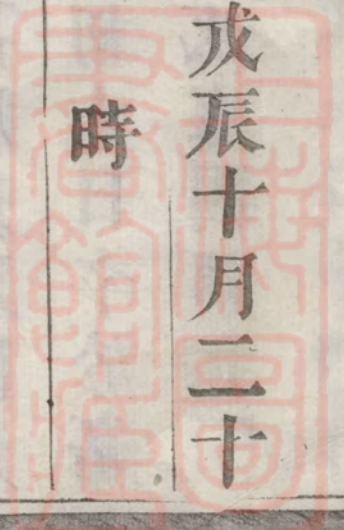 戊辰十月二十
時